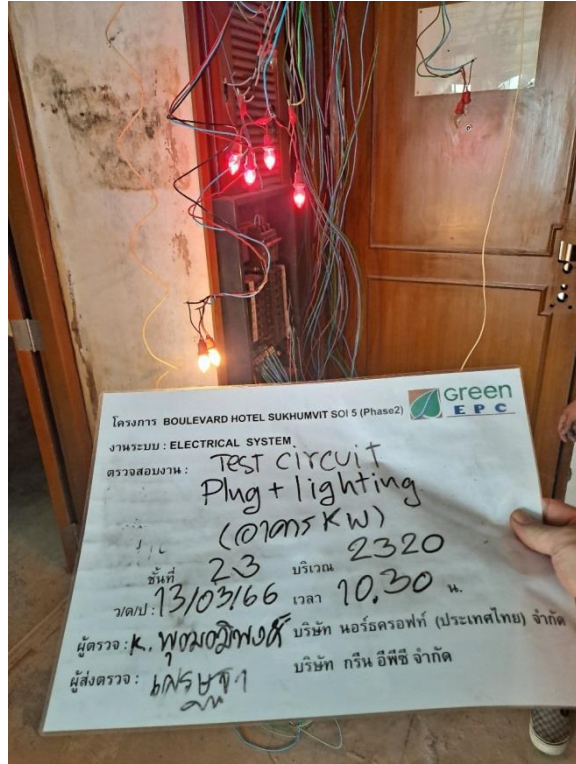 โครงการ BOULEVARD HOTEL SUKHUMVIT SOI 5 (Phase2) Green EPC
งานระบบ : ELECTRICAL SYSTEM
ตรวจสอบงาน : Test circuit
Plug + lighting
(อาคาร KW)
ชั้นที่ 23 บริเวณ 2320
ว/ด/ป : 13/03/66 เวลา 10.30 น.
ผู้ตรวจ : K. บริษัท นอร์ธครอฟท์ (ประเทศไทย) จำกัด
ผู้ส่งตรวจ : เศรษฐา บริษัท กรีน อีพีซี จำกัด